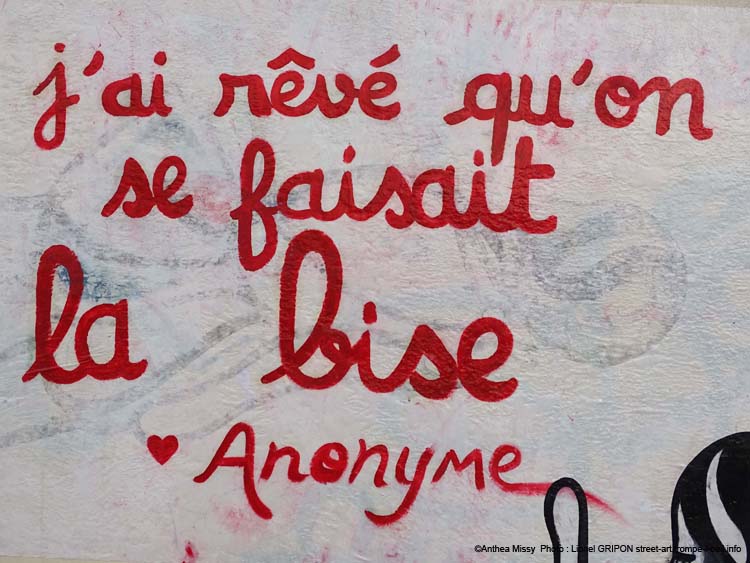 j'ai rêvé qu'on
se faisait
la bise
♥ Anonyme
©Anthea Missy Photo : Lionel GRIPON street-art